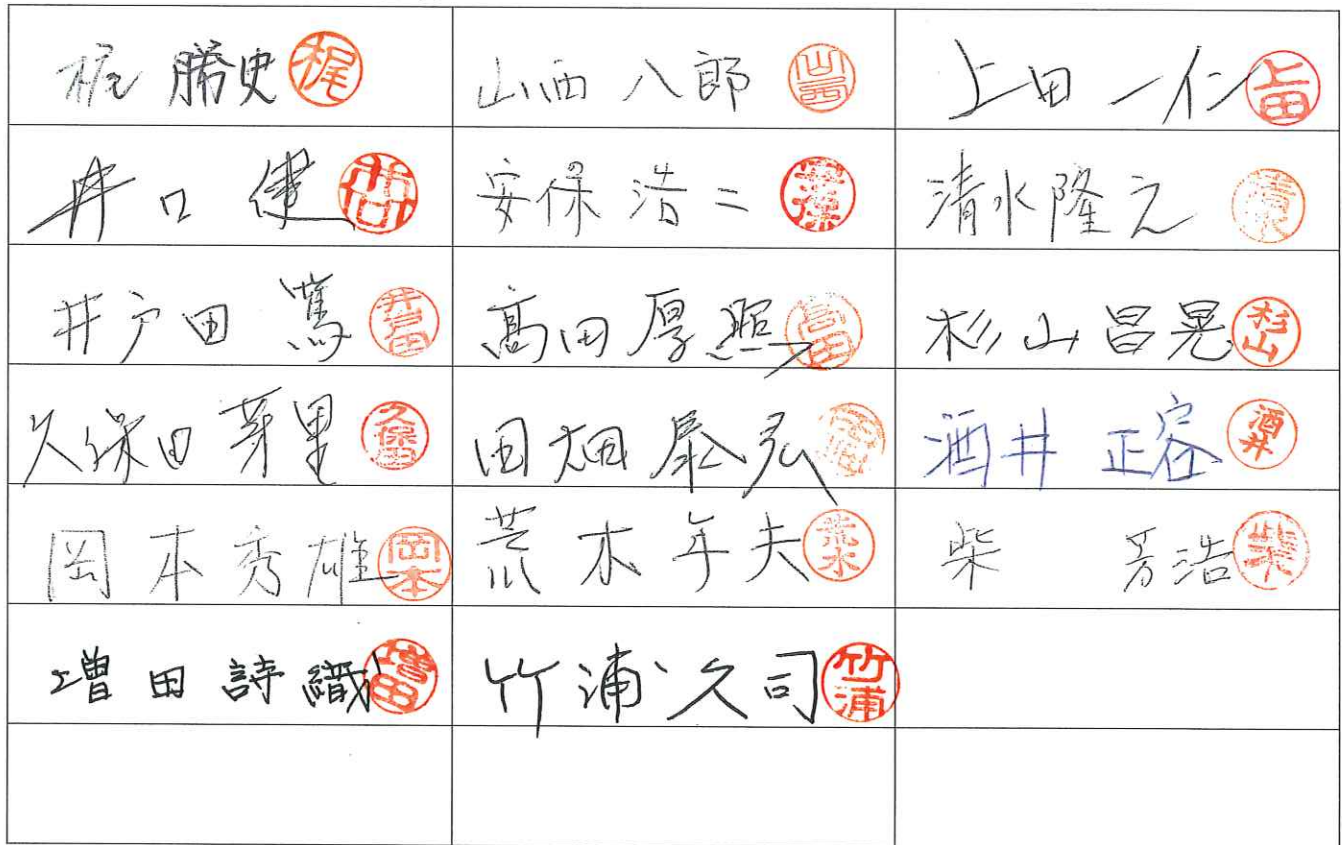 梶 勝史 梶 山西八郎 山西 上田一仁 上田
井口 健 井口 安保浩二 安保 清水隆之 清水
井戸田 篤 井戸田 髙田厚照 髙田 杉山昌晃 杉山
久保田 芽里 久保田 田畑泰弘 田畑 酒井 正容 酒井
岡本秀雄 岡本 荒木年夫 荒木 柴 芳浩 柴
増田詩織 増田 竹浦久司 竹浦